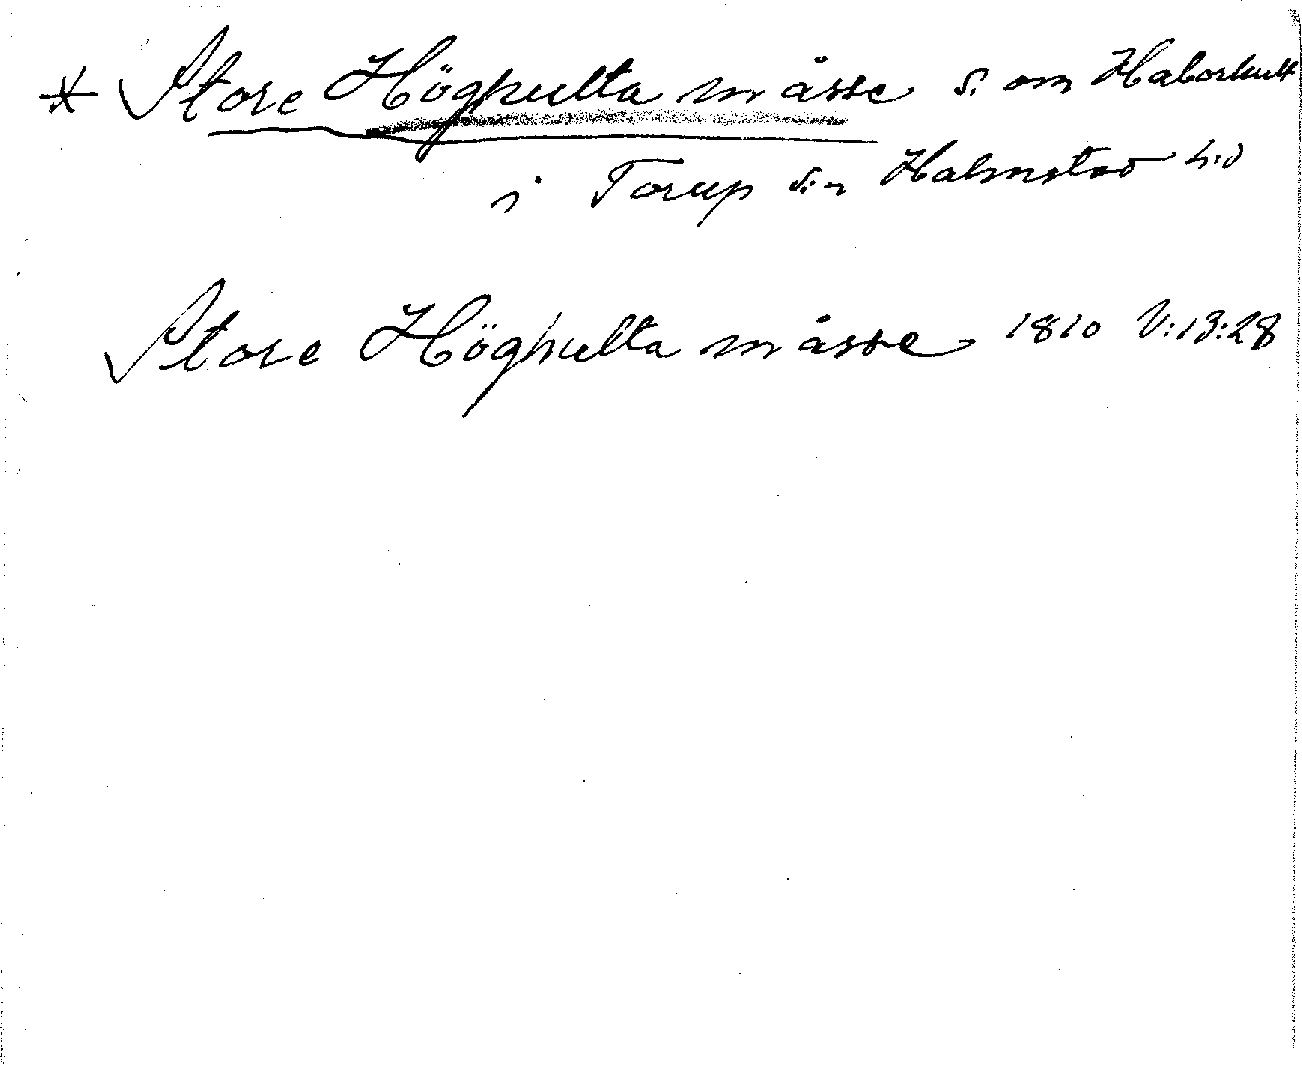 * Store Höghulta måsse s. om Haborhult
i Torup s:n Halmstad h:d
Store Höghulta måsse 1810 V:13:28